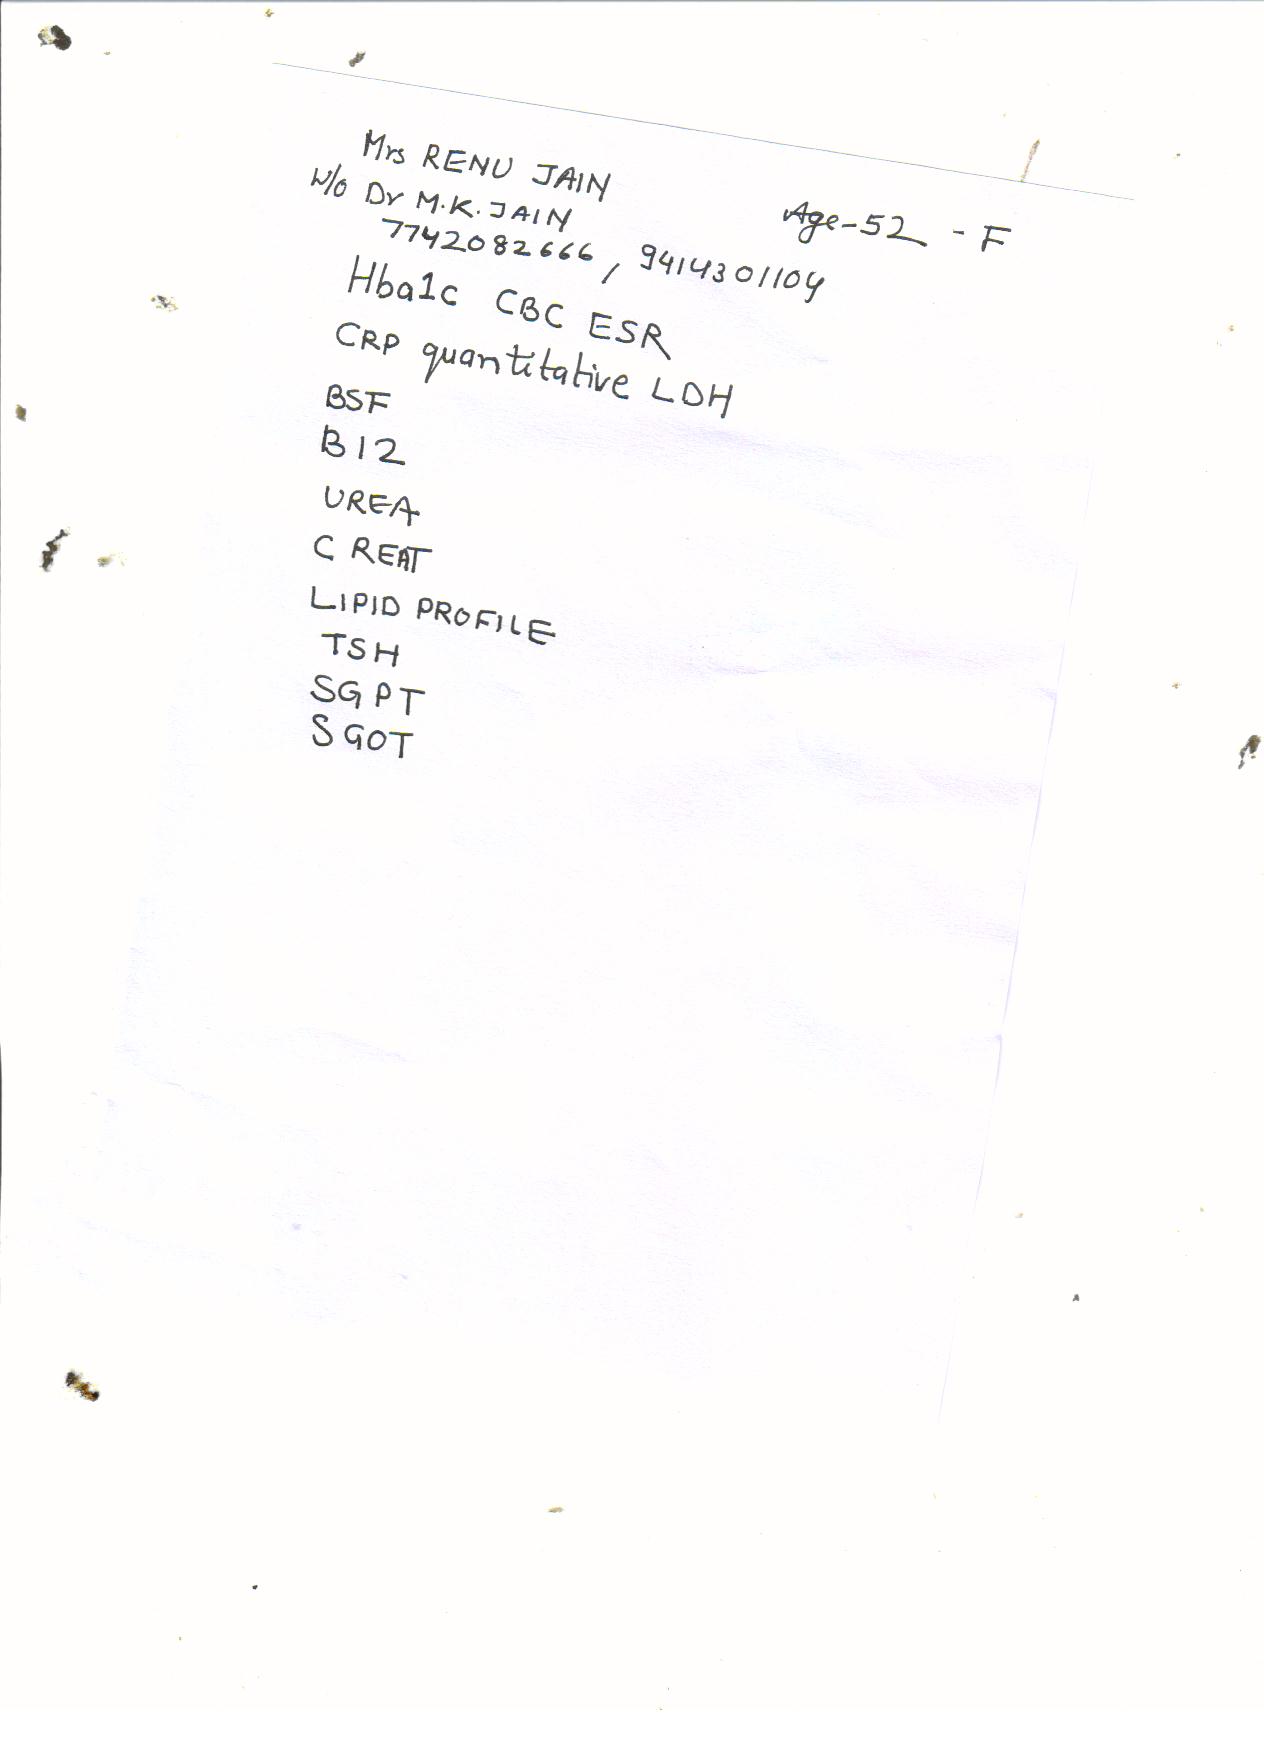 Mrs RENU JAIN
W/o Dr M.K. JAIN
Age-52 - F
7742082666, 9414301104
Hba1c CBC ESR
CRP quantitative LDH
BSF
B12
UREA
CREAT
LIPID PROFILE
TSH
SGPT
SGOT